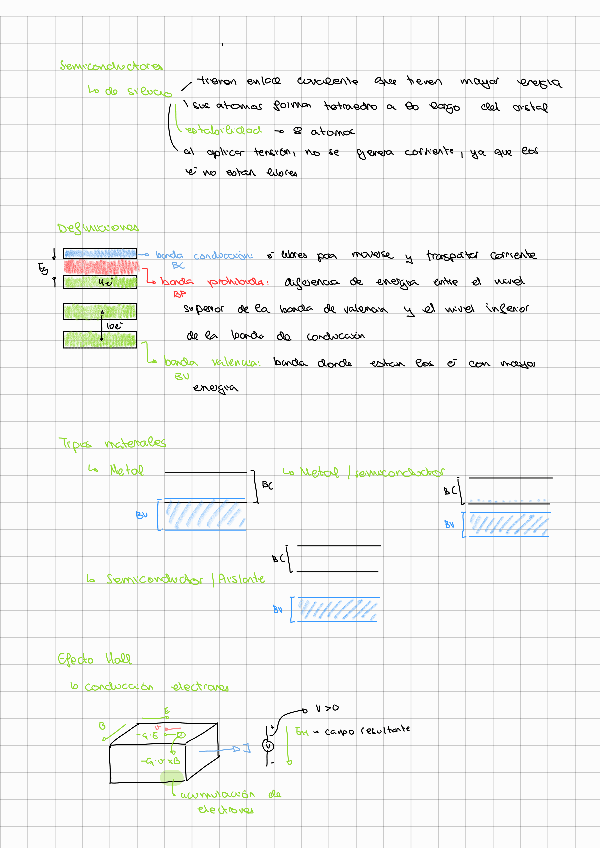 Semiconductores
↳ de silicio
tienen enlace covalente que tienen mayor energia
sus atomos forman tetraedro a lo largo del cristal
estabilidad → 8 atomos
al aplicar tensión, no se genera corriente, ya que los
e⁻ no estan libres
Definiciones
Eg
banda conducción: e⁻ libres para moverse y transportar corriente
BC
4e⁻
banda prohibida: diferencia de energia entre el nivel
BP
superior de la banda de valencia y el nivel inferior
10e⁻
de la banda de conducción
banda valencia: banda donde estan los e⁻ con mayor
BV
energia
Tipos materiales
↳ Metal
BC
BV
↳ Metal / semiconductor
BC
BV
↳ Semiconductor / Aislante
BC
BV
Efecto Hall
↳ conducción electrones
B
E
v
-q·E
-q·v×B
J
V
+
-
V>0
EH → campo resultante
acumulación de
electrones